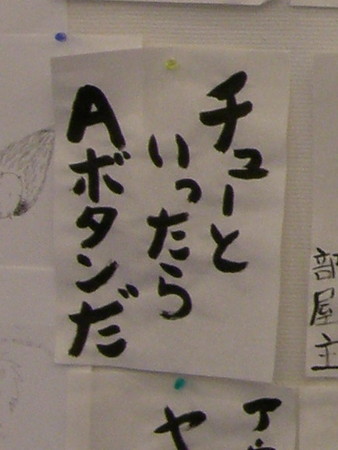 チューと
いったら
Aボタンだ
部屋主
ア
ヤ